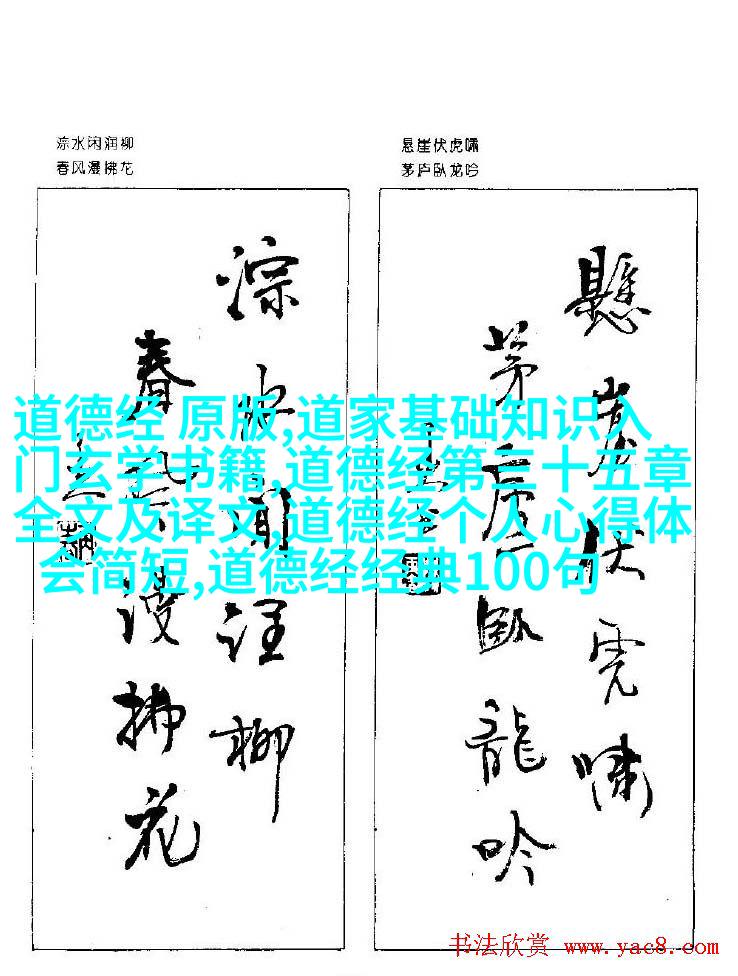 淙水闲润柳
春风漫拂花
悬崖伏虎嘯
茅庐卧龙吟
懸崖伏虎嘯
茅廬臥龍吟
淙水閒潤柳
春風漫拂花
道德经 原版,道家基础知识入
门玄学书籍,道德经第三十五章
全文及译文,道德经个人心得体
会简短,道德经经典100句
书法欣赏 www.yac8.com